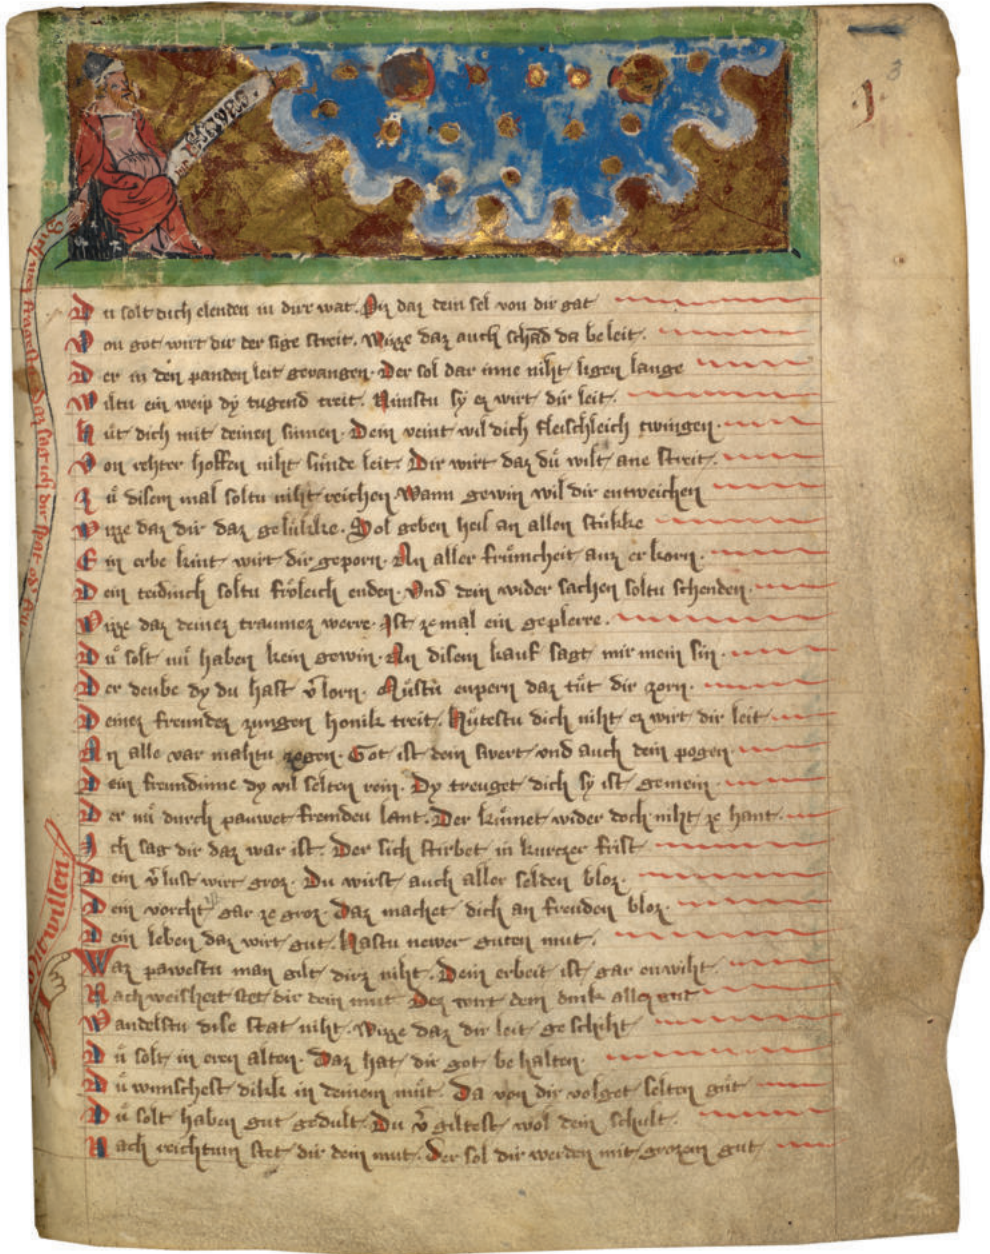 ·J·
3
Du solt dich clenden in dirr wat. An daz dein sel von dir gat
Von got wirt dir der sige streit. Wizze daz auch schad da be leit.
Der in den panden leit gevangen. Der sol dar inne niht ligen lange
Wiltu ein weip dy tugend treit. Nimstu sy ez wirt dir leit.
Hüt dich mit deinen sinnen. Dein veint wil dich fleischleich twingen.
Von rehter hoffen niht sünde leit. Dir wirt daz dü wilt ane streit.
Zü disem mal soltu niht reichen. Wann gewin wil dir entweichen
Wizze daz dir daz gelükke. Sol geben heil an allen stükke
Ein erbe kint wirt dir geporn. An aller frümcheit auz er korn.
Dein teidinch soltu fröleich enden. Vnd dein wider sachen soltu schenden.
Wizze daz deinez traumez werre. Ist ze mal ein geplerre.
Dü solt nü haben kein gewin. An disem kauf sagt mir mein sin.
Der deube dy du hast v̄lorn. Müstu enpern daz tüt dir zorn.
Deinez freundez zungen honik treit. Hütestu dich niht ez wirt dir leit
An alle var mahtu zogen. Got ist dein swert und auch dein pogen.
Dein freundinne dy vil selten rein. Dy treuget dich sy ist gemein.
Der nü durch pauwet fremdeu lant. Der kümet wider doch niht ze hant.
Ich sag dir daz war ist. Der sich stirbet in kurczer frist
Dein v̄lust wirt groz. Du wirst auch aller selden bloz.
Dein vorcht gar ze groz. Daz machet dich an freuden bloz.
Dein leben daz wirt gut. Hastu newer guten mut.
Waz pawestu man gilt dirz niht. Dein erbeit ist gar enwiht.
Nach weisheit stet dir dein mut. Dez wirt dein dink allez gut
Wandelstu dise stat niht. Wizze daz dir leit geschiht
Dü solt in eren alten. Daz hat dir got be halten.
Dü wunschest dikk in deinem müt. Da von dir volget selten güt
Dü solt haben gut gedult. Du v̄giltest wol dein schult.
Nach reichtum stet dir dein mut. Der sol dir werden mit grozem gut